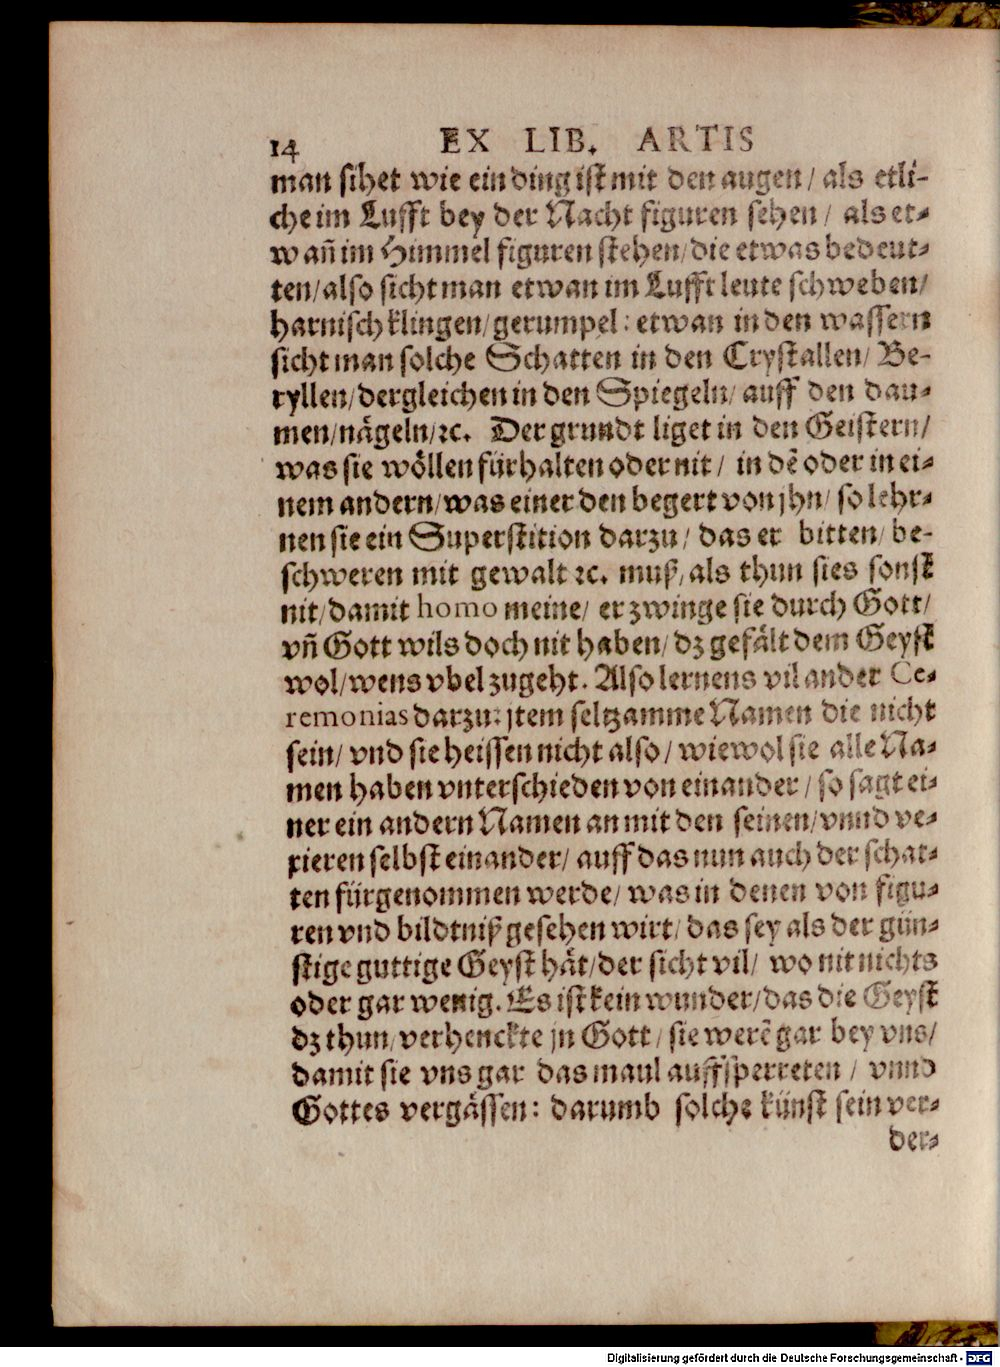 14 EX LIB. ARTIS
man sihet wie ein ding ist mit den augen / als etli-
che im Lufft bey der Nacht figuren sehen / als et-
wañ im Himmel figuren stehen / die etwas bedeut-
ten / also sicht man etwan im Lufft leute schweben /
harnisch klingen / gerumpel: etwan in den wassern
sicht man solche Schatten in den Crystallen / Be-
ryllen / dergleichen in den Spiegeln / auff den dau-
men / nägeln / ꝛc. Der grundt liget in den Geistern /
was sie wöllen fürhalten oder nit / in dē oder in ei-
nem andern / was einer den begert von jhn / so lehr-
nen sie ein Superstition darzu / das er bitten / be-
schweren mit gewalt ꝛc. muß / als thun sies sonst
nit / damit homo meine / er zwinge sie durch Gott /
vñ Gott wils doch nit haben / dz gefält dem Geyst
wol / wens vbel zugeht. Also lernens vil ander Ce-
remonias darzu: jtem seltzamme Namen die nicht
sein / vnd sie heissen nicht also / wiewol sie alle Na-
men haben vnterschieden von einander / so sagt ei-
ner ein andern Namen an mit den seinen / vnnd ve-
xieren selbst einander / auff das nun auch der schat-
ten fürgenommen werde / was in denen von figu-
ren vnd bildtniß gesehen wirt / das sey als der gün-
stige guttige Geyst hät / der sicht vil / wo nit nichts
oder gar wenig. Es ist kein wunder / das die Geyst
dz thun / verhenckte jn Gott / sie werē gar bey vns /
damit sie vns gar das maul auffsperreten / vnnd
Gottes vergässen: darumb solche künst sein ver-
der-
Digitalisierung gefördert durch die Deutsche Forschungsgemeinschaft - DFG